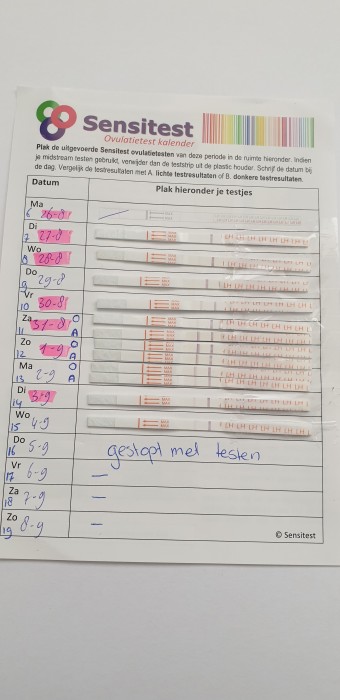 Sensitest
Ovulatietest kalender
Plak de uitgevoerde Sensitest ovulatietesten van deze periode in de ruimte hieronder. Indien
je midstream testen gebruikt, verwijder dan de teststrip uit de plastic houder. Schrijf de datum bij
de dag. Vergelijk de testresultaten met A. lichte testresultaten of B. donkere testresultaten.
Datum Plak hieronder je testjes
Ma
6 26-8
Di
7 27-8
Wo
8 28-8
Do
9 29-8
Vr
10 30-8
Za O
11 31-8 A
Zo O
12 1-9 A
Ma O
13 2-9 A
Di
14 3-9
Wo
15 4-9
Do
16 5-9 gestopt met testen
Vr
17 6-9 -
Za
18 7-9 -
Zo
19 8-9 -
© Sensitest